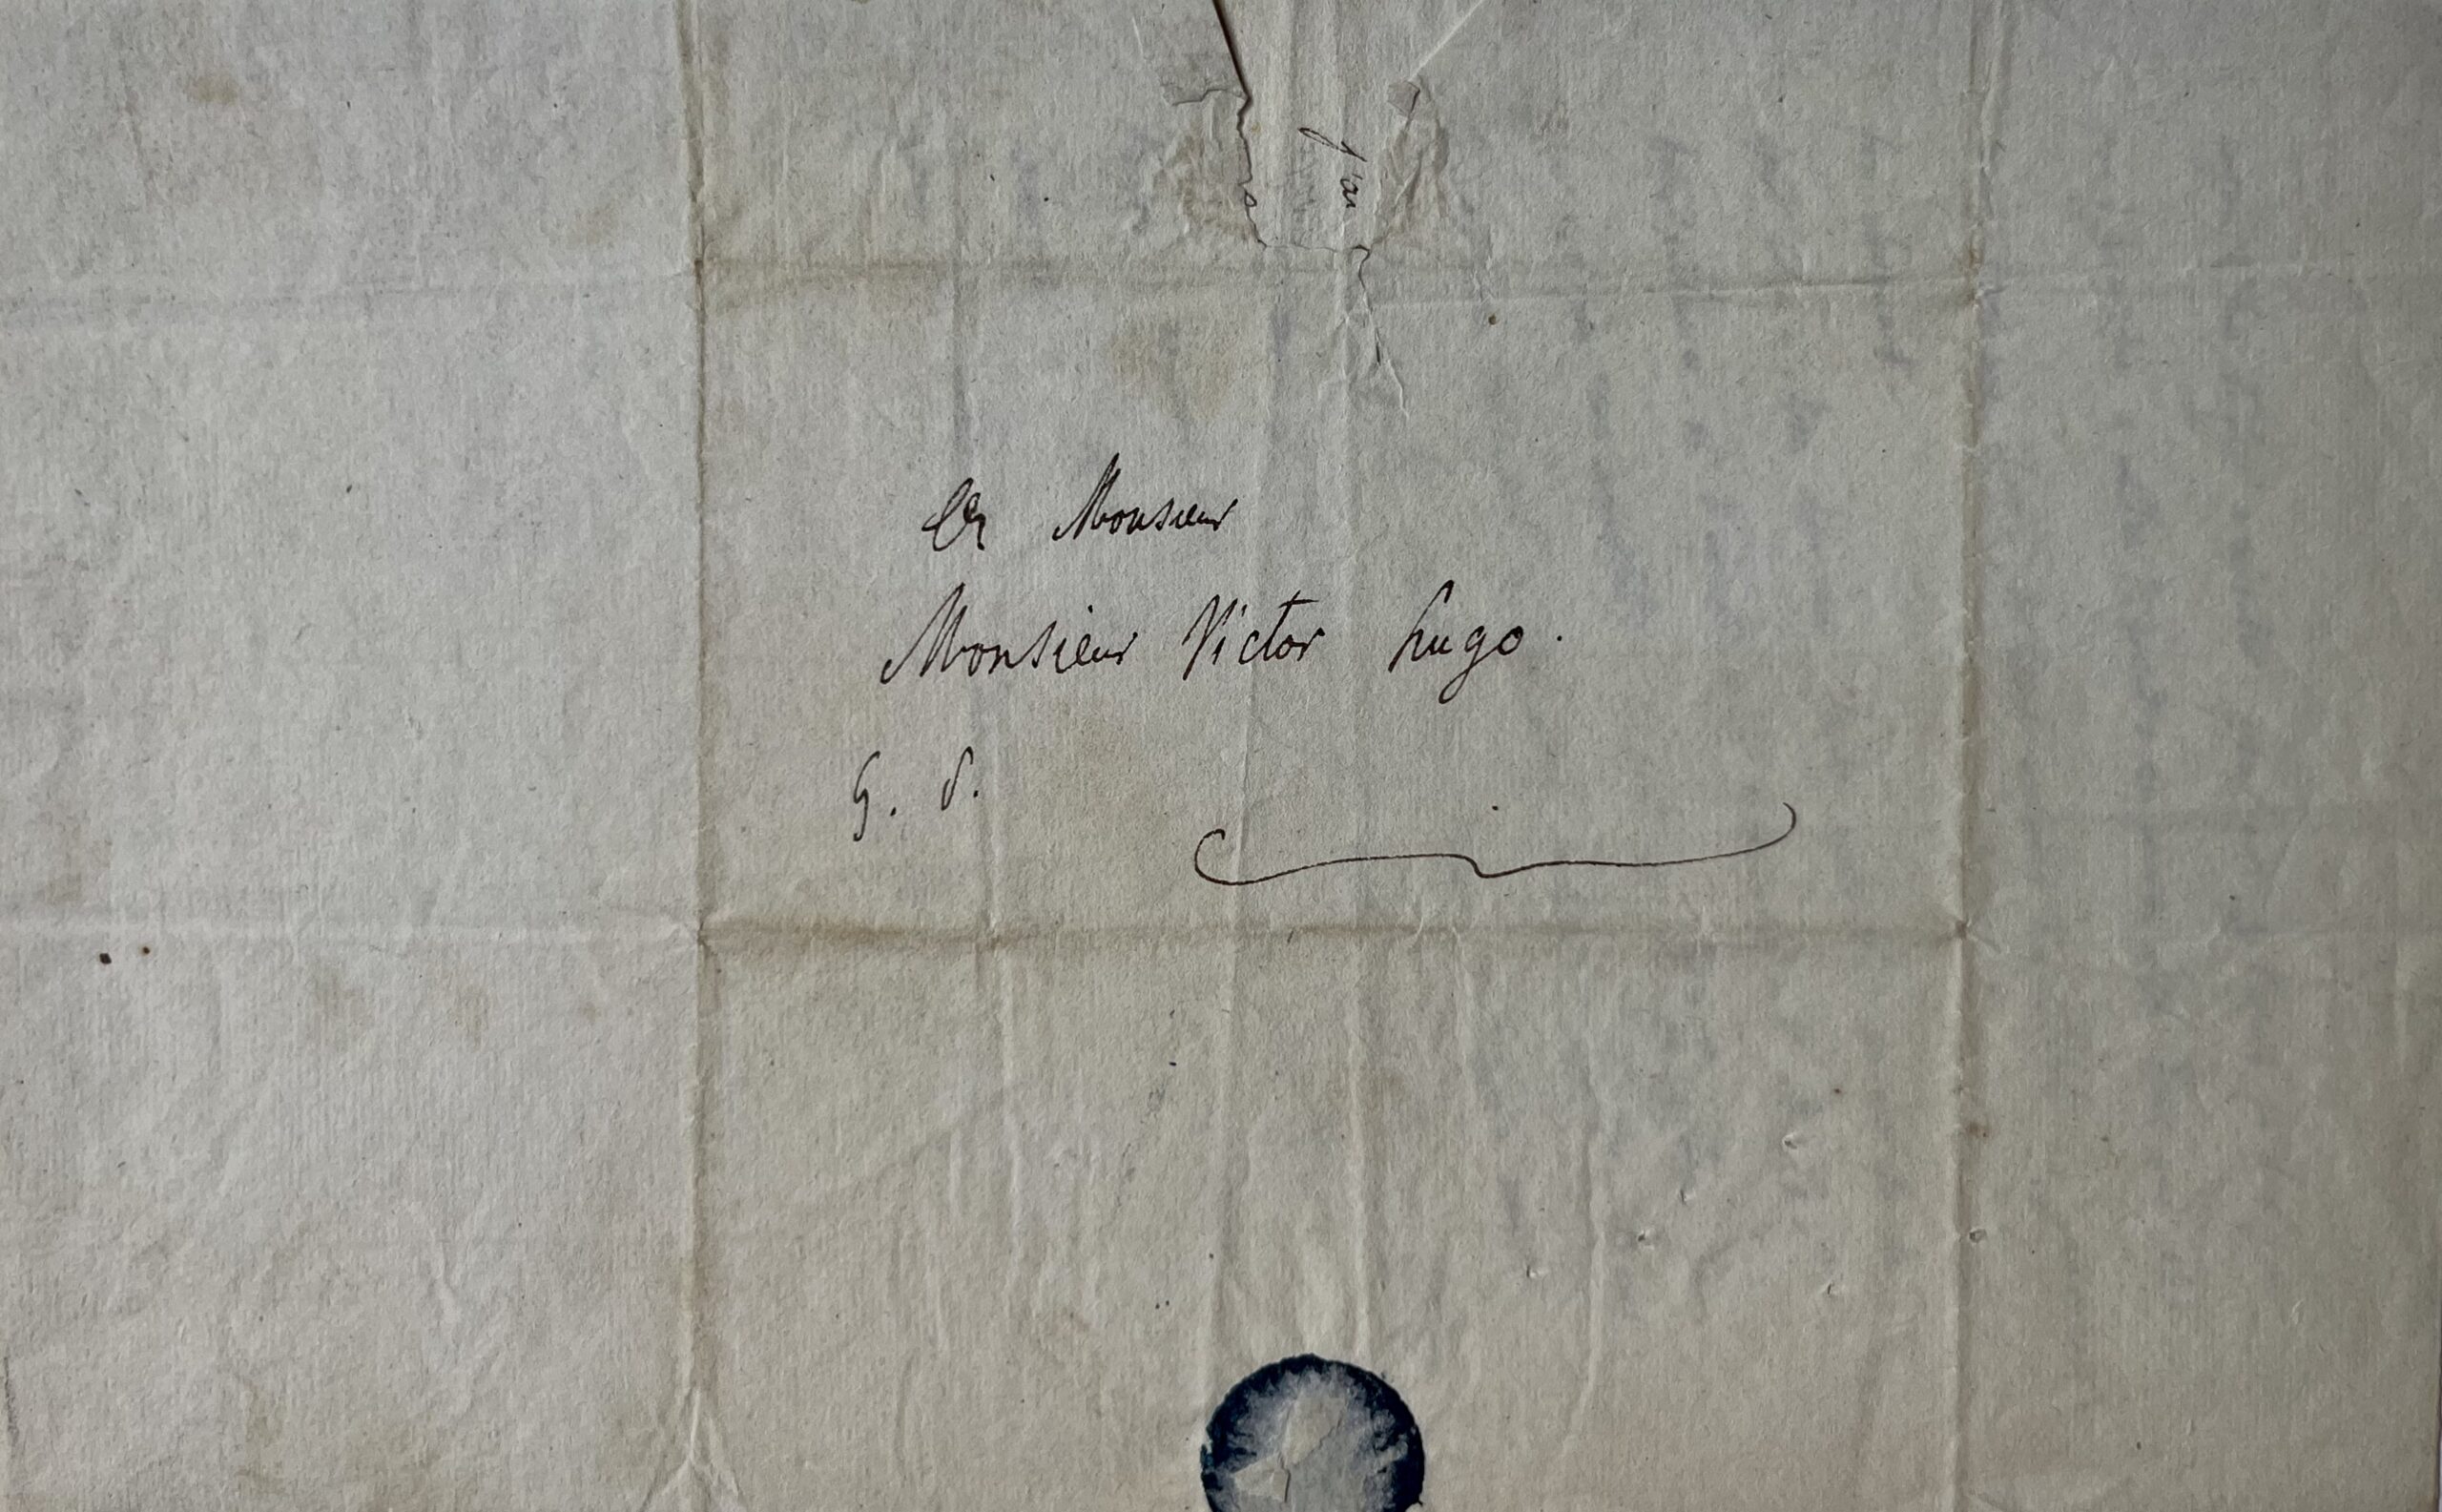 j'ai
A Monsieur
Monsieur Victor hugo.
G. S.